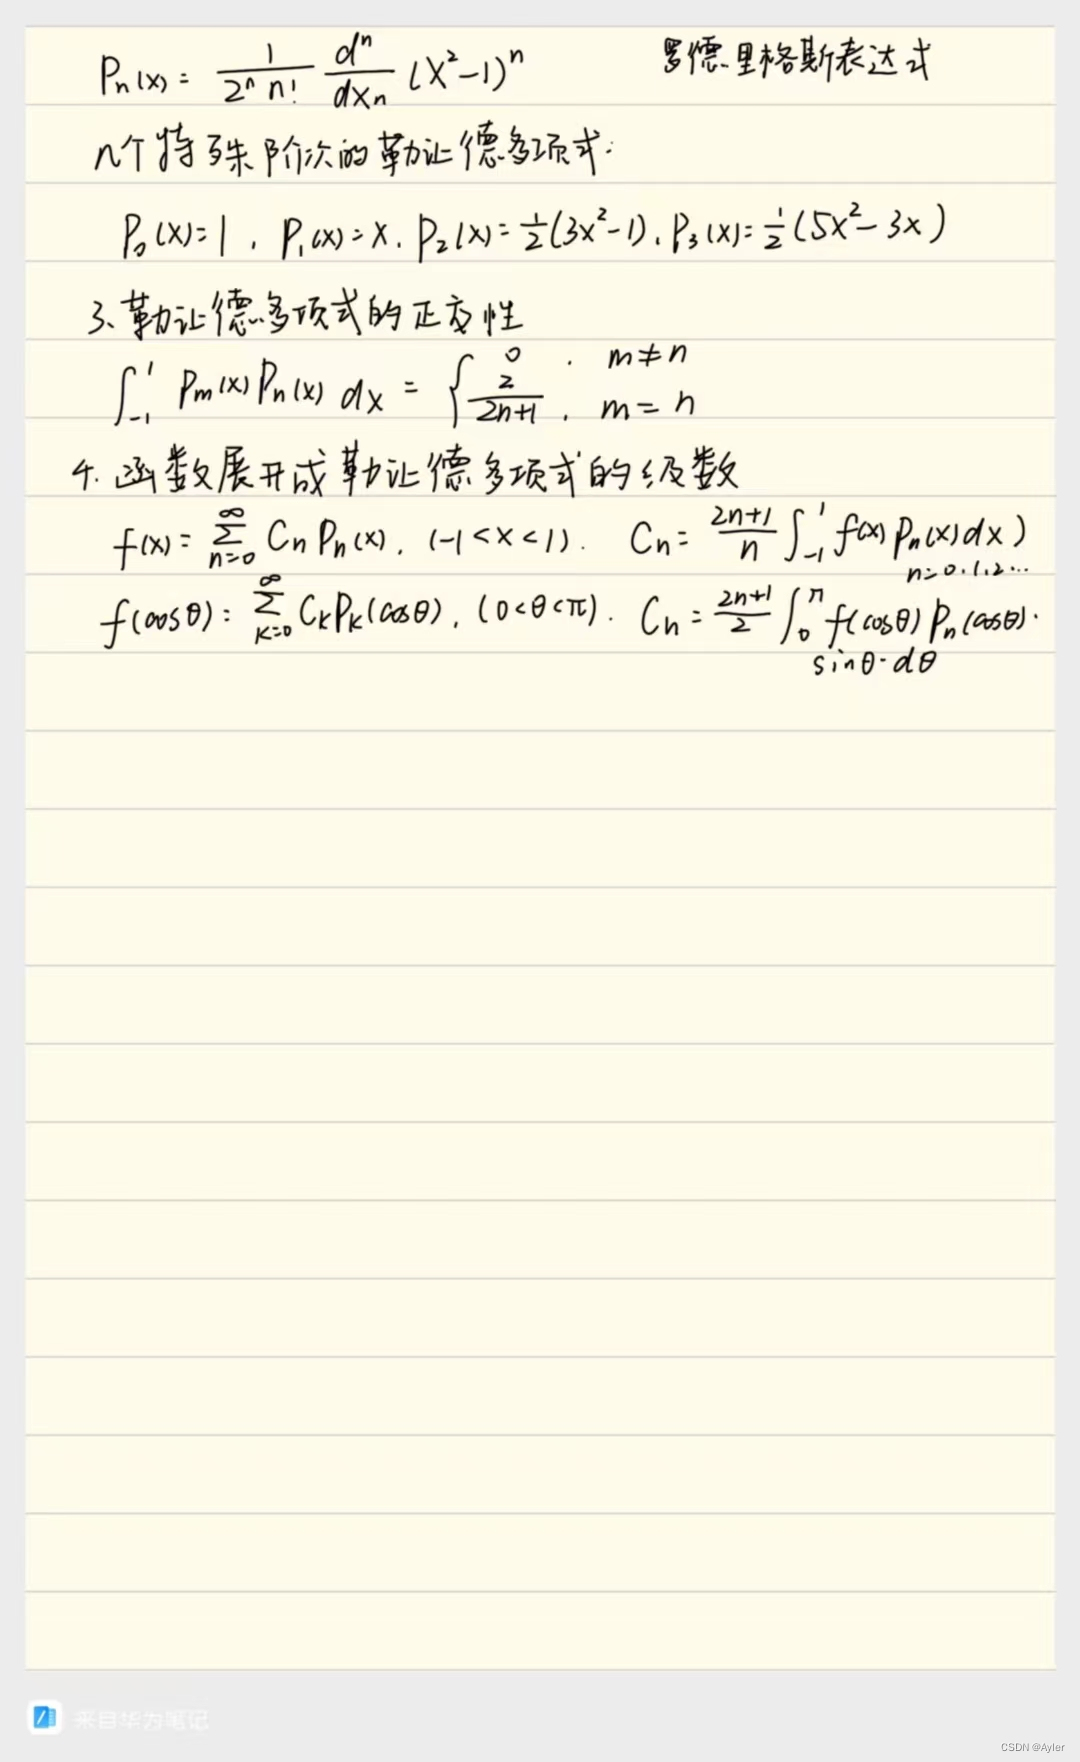 Pn(x) = 1/(2^n n!) d^n/dx_n (x²-1)^n 罗德里格斯表达式
n个特殊阶次的勒让德多项式:
P₀(x)=1, P₁(x)=x, P₂(x)=1/2(3x²-1), P₃(x)=1/2(5x²-3x)
3、勒让德多项式的正交性
∫₋₁¹ Pm(x)Pn(x) dx = { 0, m≠n
2/(2n+1), m=n
4. 函数展开成勒让德多项式的级数
f(x) = ∑_{n=0}^∞ Cn Pn(x), (-1<x<1). Cn = (2n+1)/n ∫₋₁¹ f(x) Pn(x)dx)
n=0,1,2...
f(cosθ) = ∑_{k=0}^∞ CkPk(cosθ), (0<θ<π). Cn = (2n+1)/2 ∫₀^π f(cosθ) Pn(cosθ)·
sinθ·dθ
来自华为笔记
CSDN @Ayler